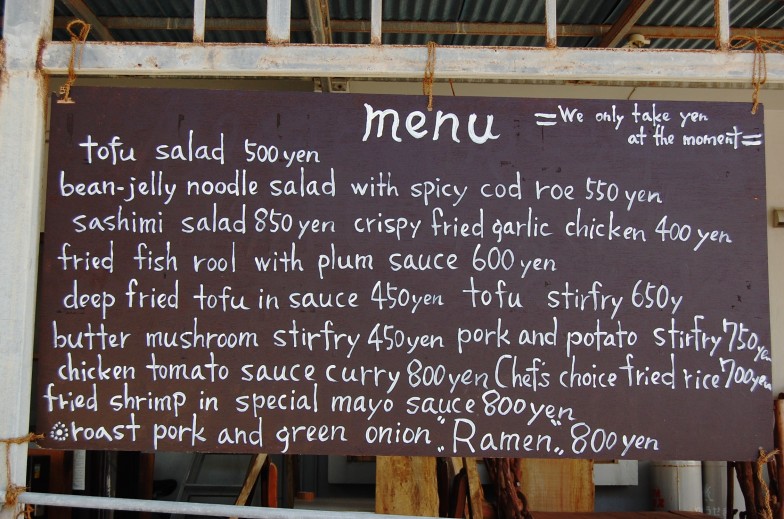 menu
=We only take yen
at the moment=
tofu salad 500yen
bean-jelly noodle salad with spicy cod roe 550yen
sashimi salad 850yen crispy fried garlic chicken 400yen
fried fish rool with plum sauce 600yen
deep fried tofu in sauce 450yen tofu stirfry 650y
butter mushroom stirfry 450yen pork and potato stirfry 750yen
chicken tomato sauce curry 800yen Chef's choice fried rice 700yen
fried shrimp in special mayo sauce 800yen
roast pork and green onion "Ramen" 800yen